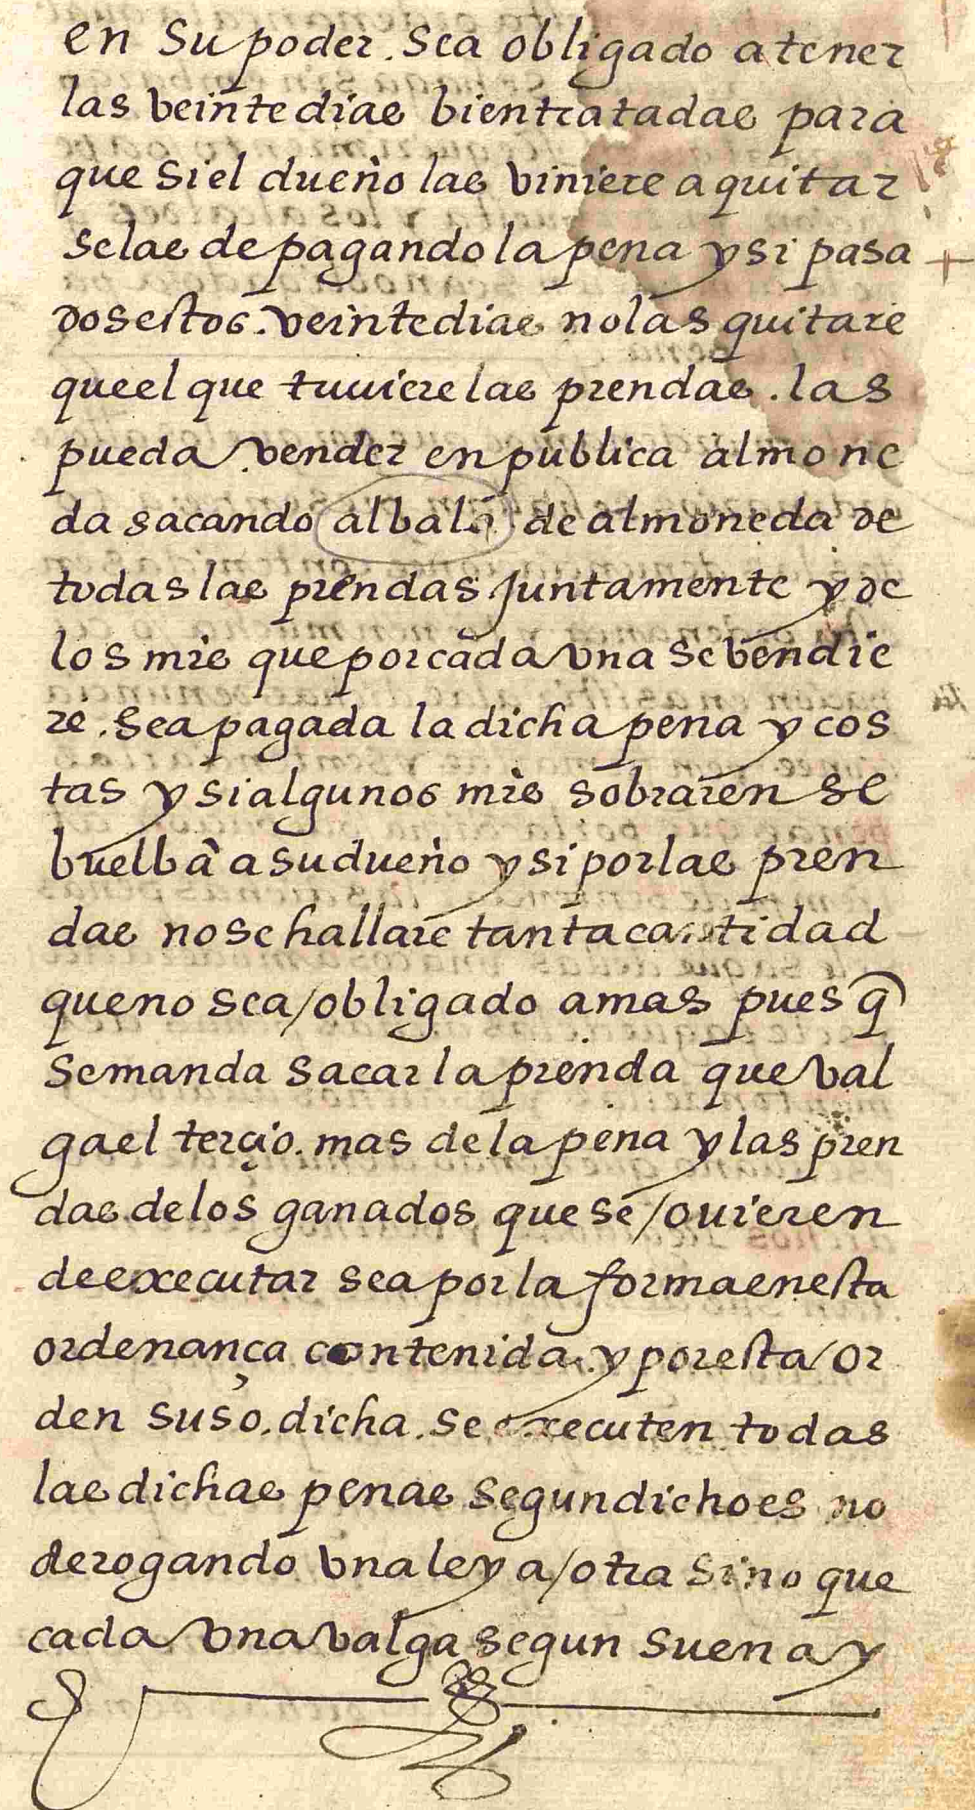 en Su poder. Sea obligado a tener
las veinte dias bien tratadas para
que si el dueño las viniere a quitar
se las de pagando la pena y si pasa
dos estos. veinte dias no las quitare
que el que tuuiere las prendas. las
pueda vender en publica almone
da sacando albalá de almoneda de
todas las prendas Juntamente y de
los mrs que por cada vna se bendie
re. sea pagada la dicha pena y cos
tas y si algunos mrs sobraren se
buelbā a su dueño y si por las pren
das no se hallare tanta cantidad
que no sea / obligado a mas pues q̄
se manda sacar la prenda que val
ga el terçio. mas de la pena y las pren
das de los ganados que se / ouieren
de executar sea por la forma en esta
ordenança contenida. y por esta / or
den suso. dicha. se executen todas
las dichas penas segun dicho es no
derogando vna ley a / otra sino que
cada vna valga segun suena y